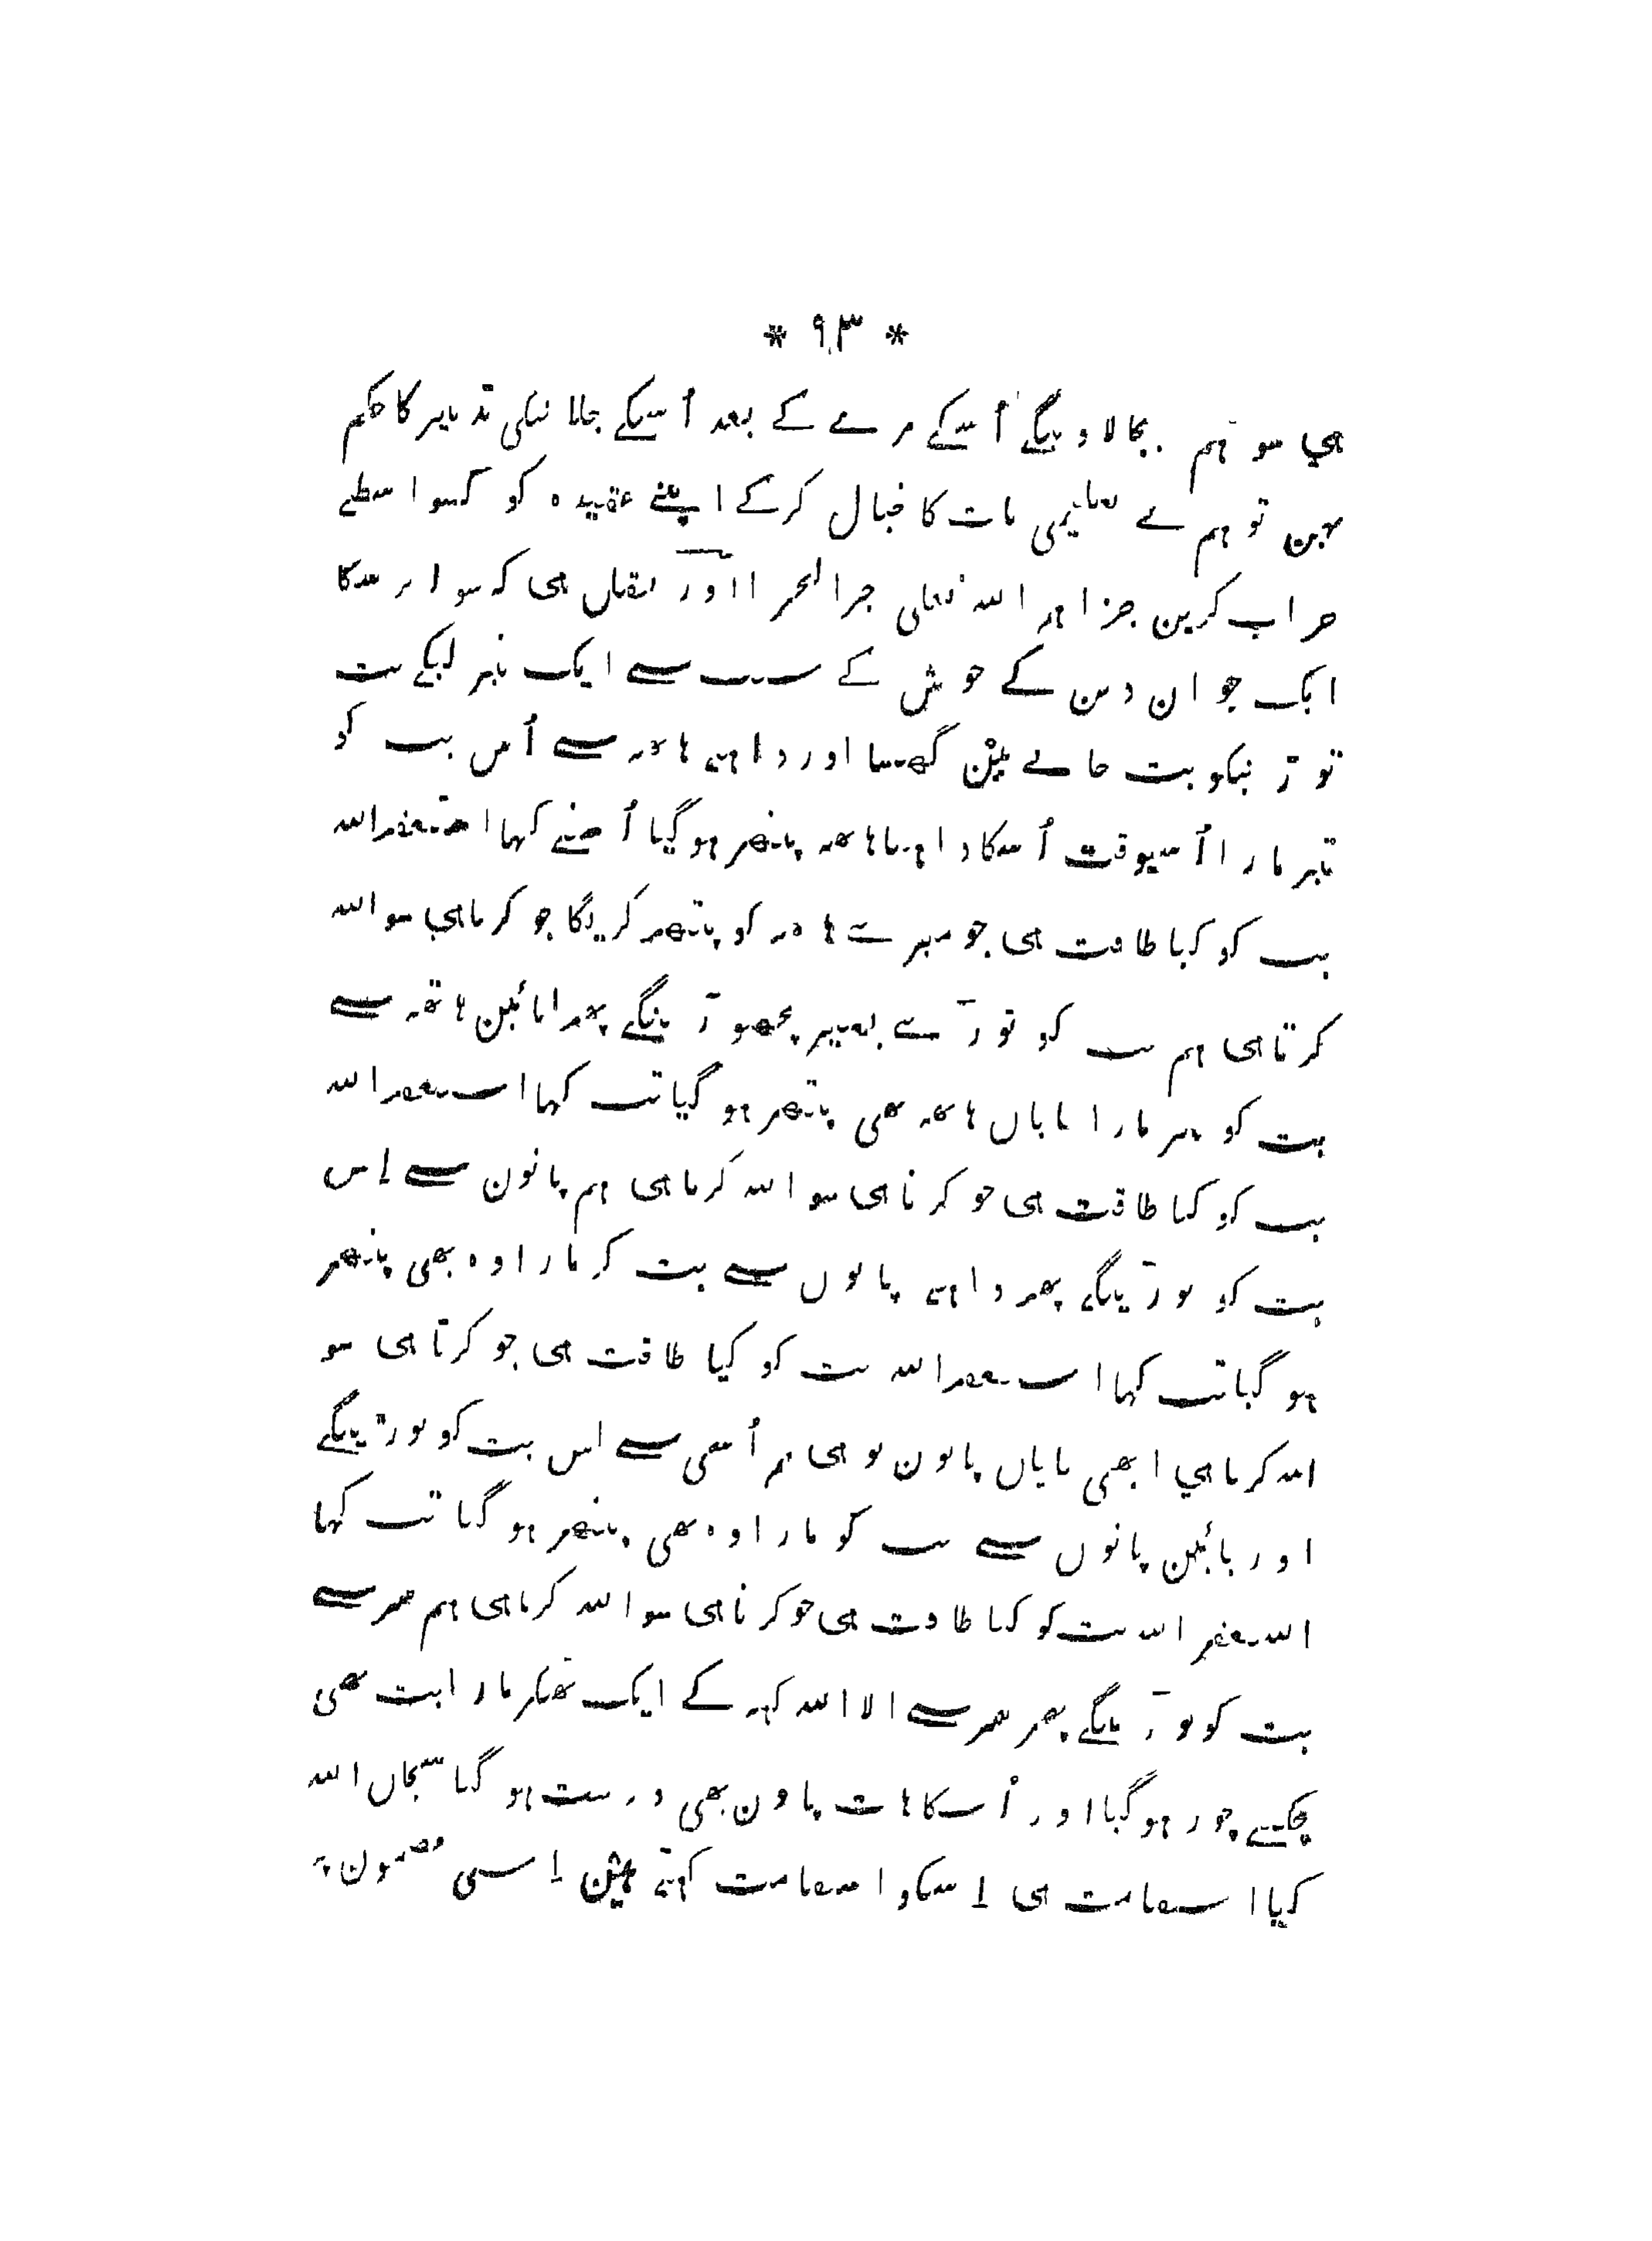 * ۹۳ *
هي سو هم بجالاوینگے اُسکے مرے کے بعد اُسکے جلانیکی تدبیر کا حکم
نہین تو هم نے تعلیمی بات کا خیال کرکے اپنے عقیدہ کو کسواسطے
خراب کرین جزاهم الله تعالی خیرالجزا اور نقل هی کہ سوا
ایک جوان دین کے جوش کے سبب سے ایک تبر لیکے بت
توڑنیکو بت خانے مین گھسا اور داهنے هاتھ سے اُس بت کو
تبر مارا اُسیوقت اُسکا داهنا هاتھ پتھر هوگیا اُسنے کہا استغفرالله
بت کو کیا طاقت هی جو میرے هاتھ کو پتھر کریگا جو کرتا هی سو الله
کرتا هی هم بت کو توڑے بغیر نچھوڑینگے پھر بائین هاتھ سے
بت کو تبر مارا بایاں هاتھ بھی پتھر هو گیا تب کہا استغفرالله
بت کو کیا طاقت هی جو کرتا هی سو الله کرتا هی هم پانون سے اِس
بت کو توڑینگے پھر داهنے پانوں سے بت کو مارا وہ بھی پتھر
هو گیا تب کہا استغفرالله بت کو کیا طاقت هی جو کرتا هی سو
الله کرتا هي ابھی بایاں پانون تو هی هم اُسی سے اس بت کو توڑینگے
اور بائین پانوں سے بت کو مارا وہ بھی پتھر هو گیا تب کہا
استغفرالله بت کو کیا طاقت هی جو کرتا هی سو الله کرتا هی هم سر سے
بت کو توڑینگے پھر سر سے الا الله کہہ کے ایک ٹکر مارا بت بھی
چکنے چور هو گیا اور اُسکا هات پاون بھی درست هو گیا سبحان الله
کیا استقامت هی اِسکو استقامت کہتے هین اِسی مضمون پر